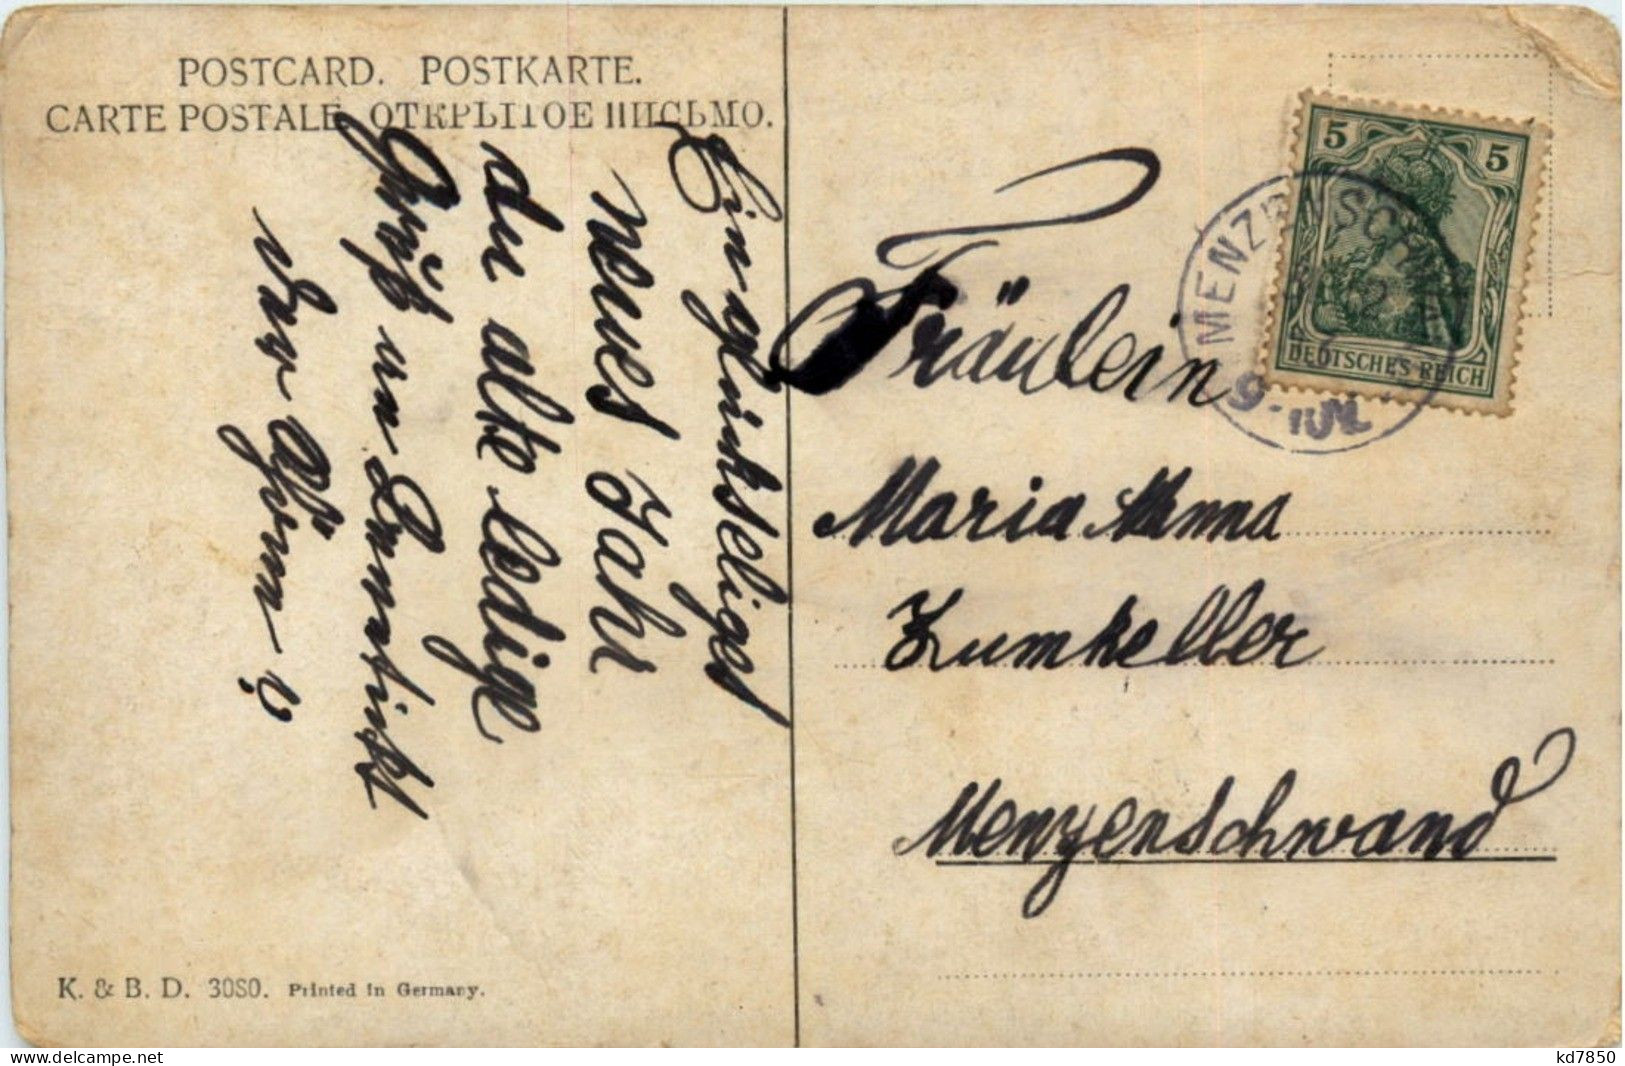 POSTCARD. POSTKARTE.
CARTE POSTALE. ОТКРЫТОЕ ПИСЬМО.
Ein glükseliges
neues Jahr
du alte ledige
Gruß un
5 5
DEUTSCHES REICH
MENZ SCHW
Fräulein
Maria Anna
Zumkeller
Menzenschwand
K. & B. D. 30SO. Printed in Germany.
www.delcampe.net
kd7850